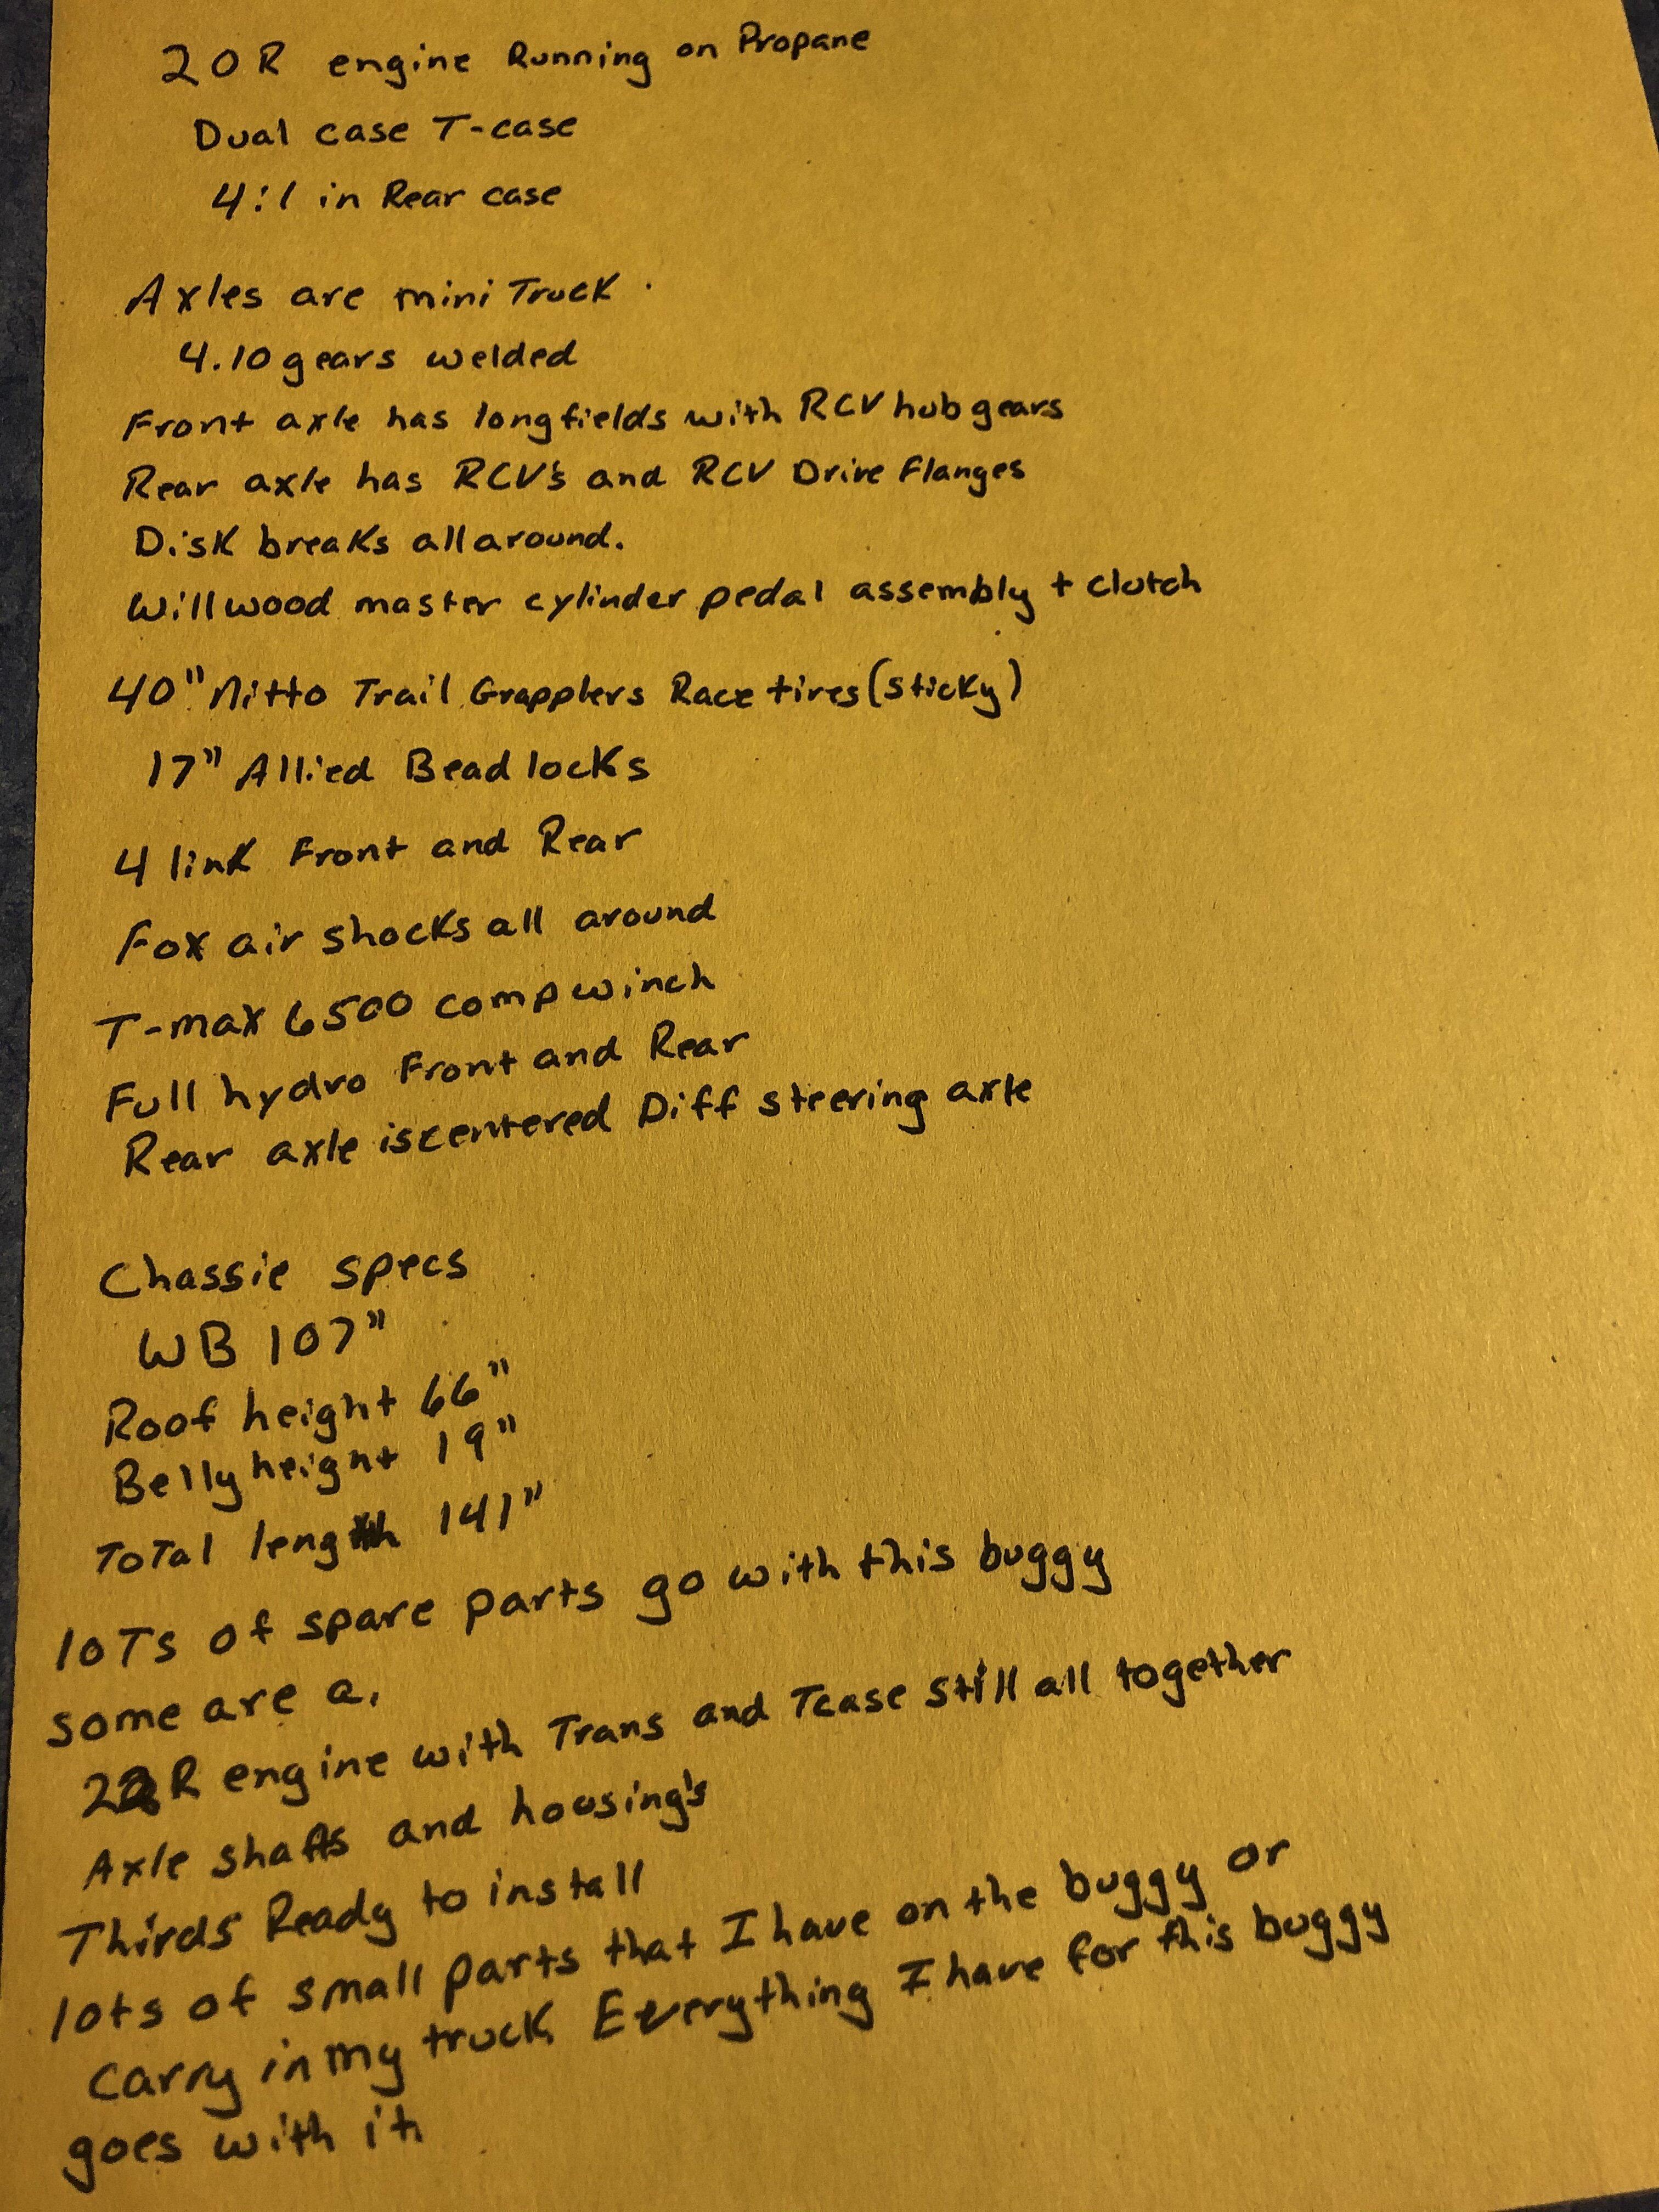 20R engine Running on Propane
Dual case T-case
4:1 in Rear case
Axles are mini Truck.
4.10 gears welded
Front axle has longfields with RCV hub gears
Rear axle has RCV's and RCV Drive Flanges
Disk breaks all around.
Willwood master cylinder pedal assembly + clutch
40" Nitto Trail Grapplers Race tires (sticky)
17" Allied Bead locks
4 link Front and Rear
Fox air shocks all around
T-max 6500 comp winch
Full hydro Front and Rear
Rear axle is centered Diff steering axle
Chassie specs
WB 107"
Roof height 66"
Belly height 19"
Total length 141"
loTs of spare parts go with this buggy
some are a,
22R engine with Trans and Tcase still all together
Axle shafts and housing's
Thirds Ready to install
lots of small parts that I have on the buggy or
carry in my truck Everything I have for this buggy
goes with it.